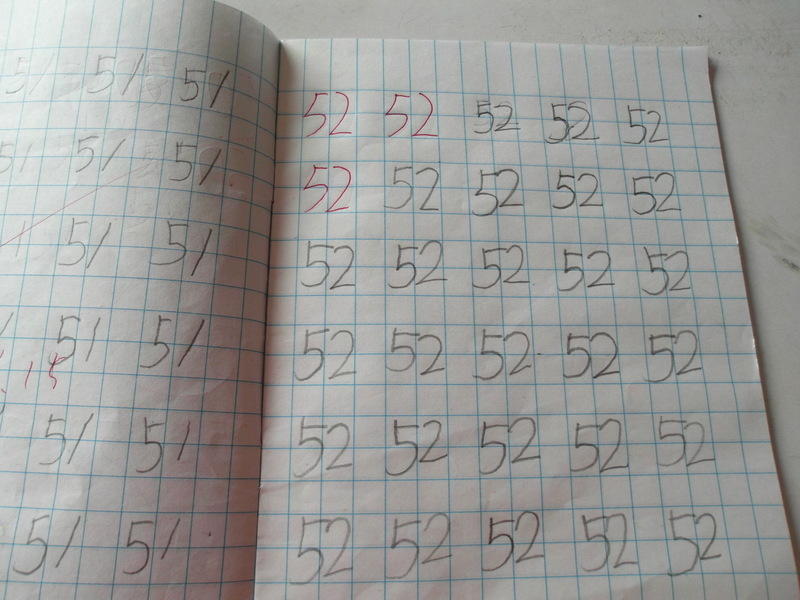 51 51 51
51 51 51
51 51
51 51
15
51 51
51 51
52 52 52 52 52
52 52 52 52 52
52 52 52 52 52
52 52 52 52 52
52 52 52 52 52
52 52 52 52 52